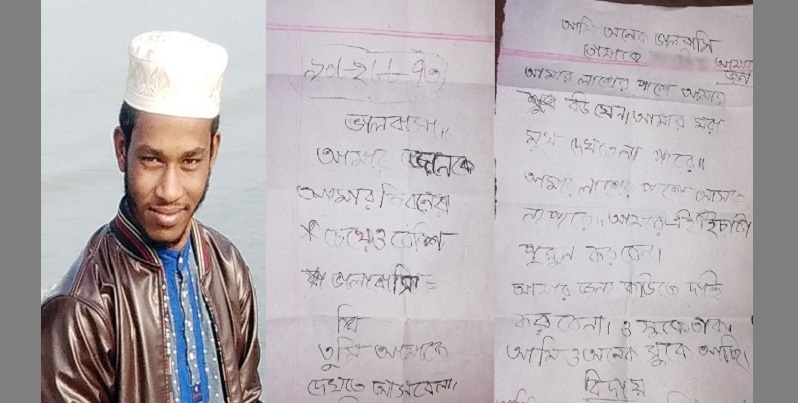 ভালবাসা॥
আমার জানকে
আমার জিবনের
চেয়েও বেশি
ভালোবাসি =
কি
তুমি আমাকে
দেখতে আসবেনা।
আমি অনেক ভালবাসি
তোমাকে আমার জন্য
আমার লাশের পাশে আমার
বউ যেন আমার মরা
মুখ দেখতেনা পারে॥
আমার লাশের পাশে আসতে
না পারে॥ আমার এই ইচ্ছাটা
পুরুন করবেন।
আমার জন্য কাউকে দায়ি
করবেনা। ও সুকেথাক
আমি ও অনেক সুকে আছি।
বিদায়